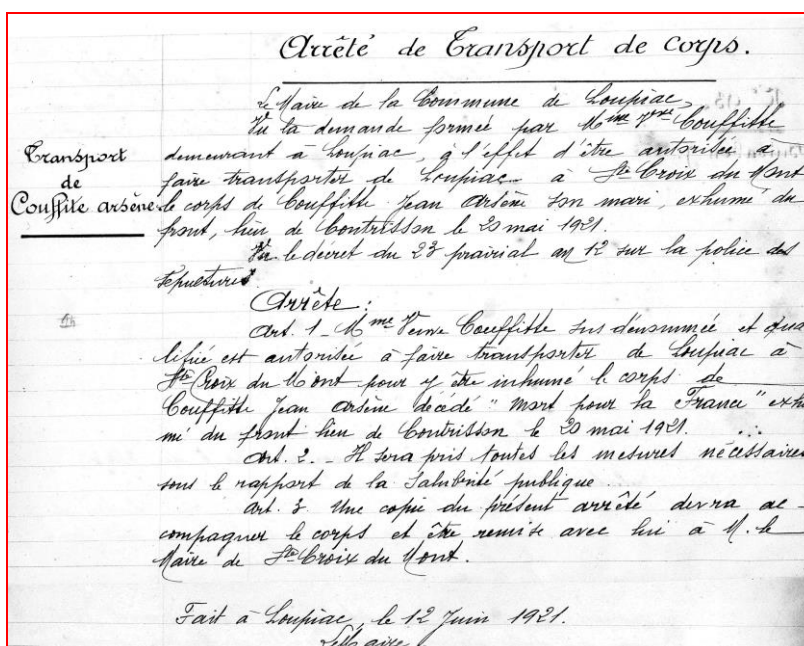 Arrêté de Transport de corps.
Le Maire de la Commune de Loupiac,
Vu la demande formée par Mme Vve Couffitte
demeurant à Loupiac, à l'effet d'être autorisée à
faire transporter de Loupiac à Ste Croix du Mont
le corps de Couffitte Jean Arsène son mari, exhumé du
front, lieu de Contrisson le 20 mai 1921.
Vu le décret du 23 prairial an 12 sur la police des
sépultures.
Transport
de
Couffite arsène
Arrête :
Art. 1 - Mme Veuve Couffitte sus dénommée et qua
lifiée est autorisée à faire transporter de Loupiac à
Ste Croix du Mont pour y être inhumé le corps de
Couffitte Jean Arsène décédé "Mort pour la France" exhu
mé du front lieu de Contrisson le 20 mai 1921.
Art. 2. - Il sera pris toutes les mesures nécessaires
sous le rapport de la salubrité publique
Art. 3 Une copie du présent arrêté devra ac-
compagner le corps et être remise avec lui à M. le
Maire de Ste Croix du Mont.
Fait à Loupiac, le 12 Juin 1921.
Le Maire